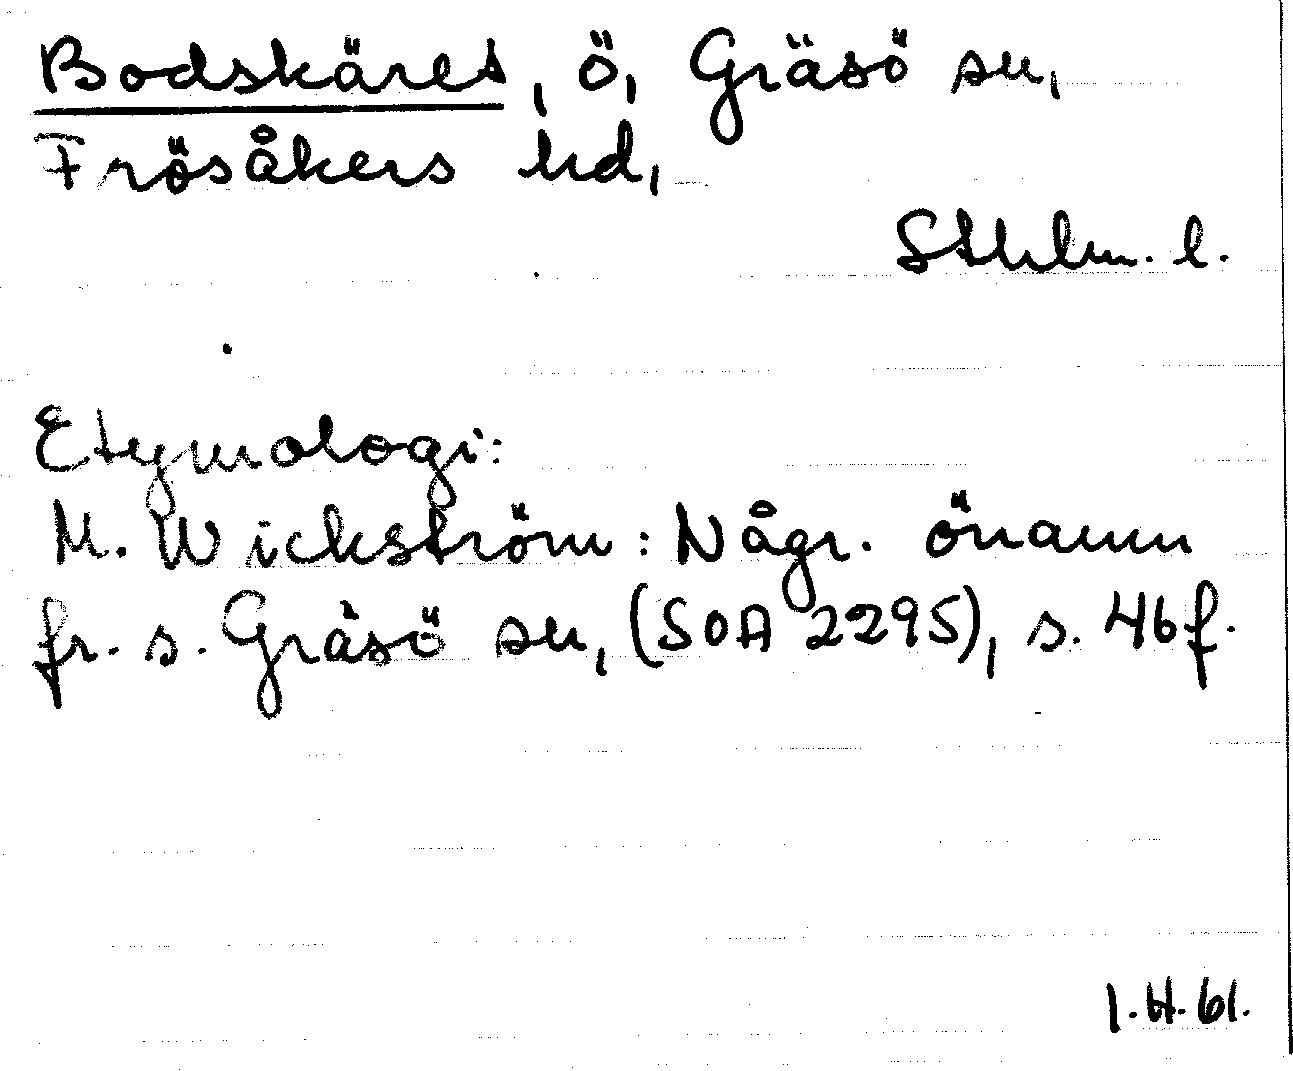 Bodskäret, ö, Gräsö sn,
Frösåkers hd,
Sthlm. l.
Etymologi:
M. Wickström: Någr. önamn
fr. s. Gräsö sn, (SOA 2295), s. 46 f.
I.H. 61.